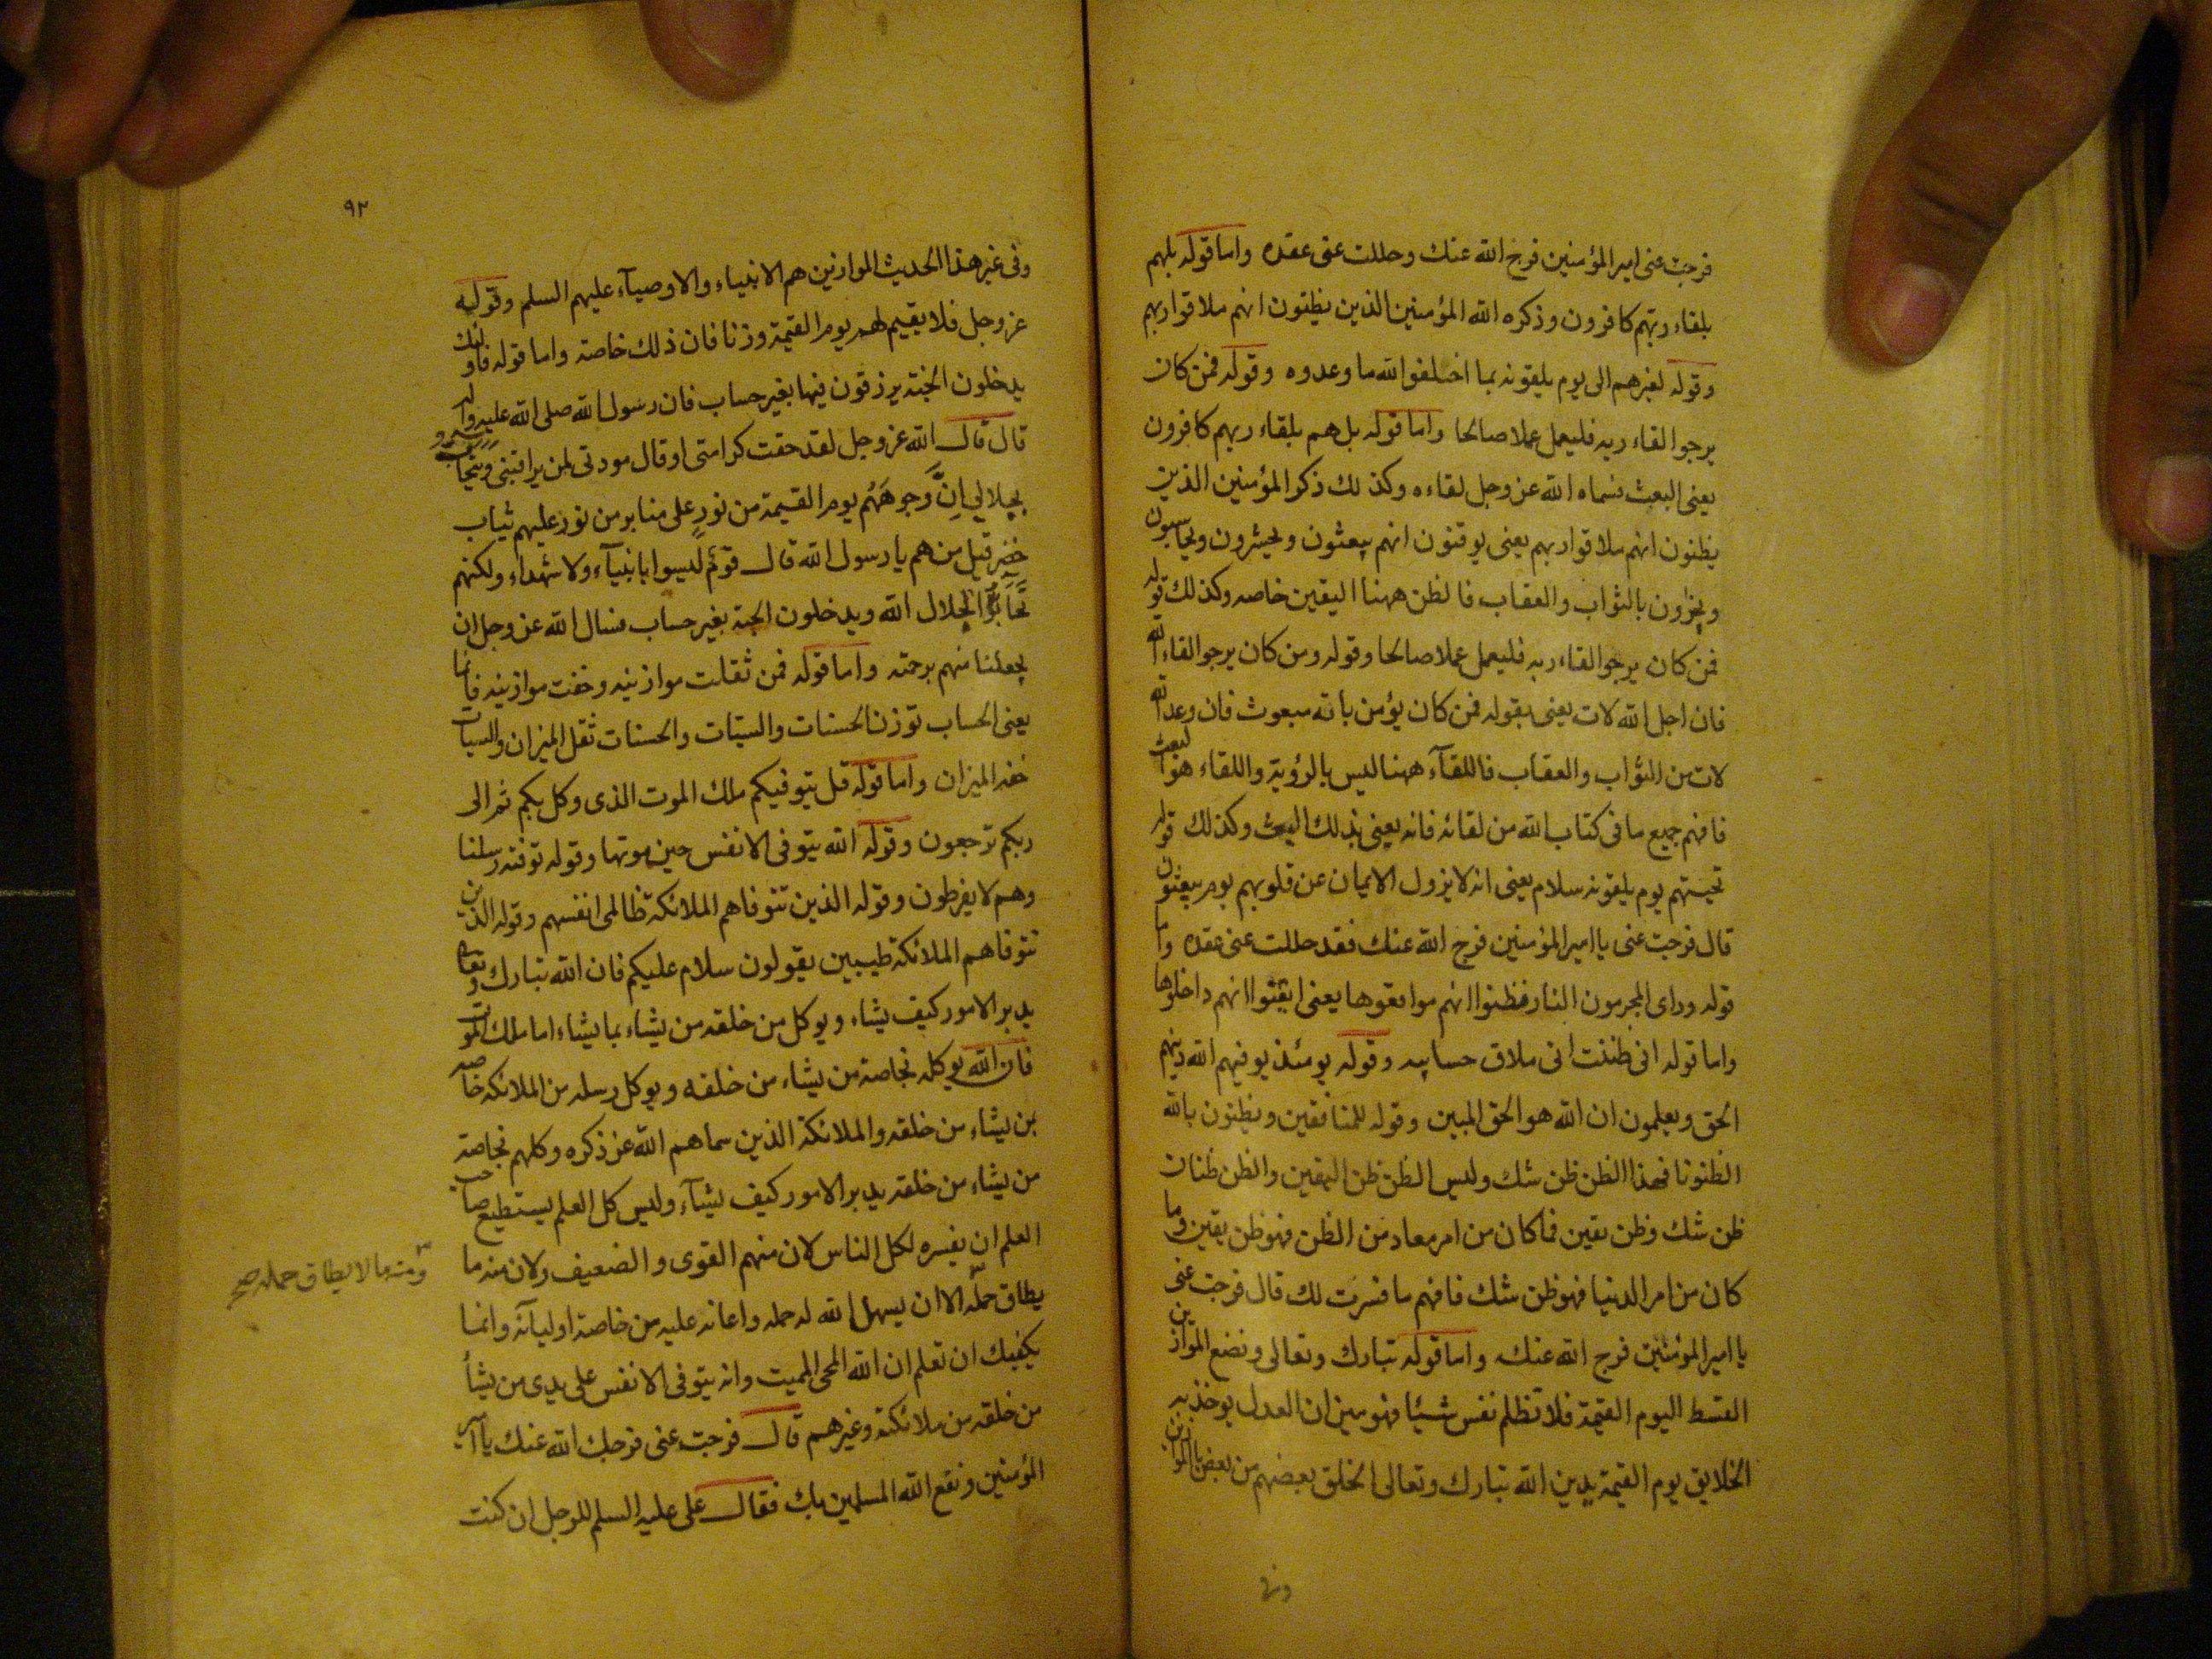 فرجت عنى امير المؤمنين فرج الله عنك وحللت عنى عقده واما قوله بلهم
بلقاء ربهم كافرون وذكره الله المؤمنين الذين يظنون انهم ملاقوا ربهم
وقوله لغيرهم الى يوم يلقونه بما اخلفوا الله ما وعدوه وقوله فمن كان
يرجوا لقاء ربه فليعمل عملا صالحا واما قوله بل هم بلقاء ربهم كافرون
يعنى البعث فسماه الله عز وجل لقاءه وكذلك ذكر المؤمنين الذين
يظنون انهم ملاقوا ربهم يعنى يوقنون انهم يبعثون ويحشرون ويحاسبون
ويجزون بالثواب والعقاب فالظن ههنا اليقين خاصه وكذلك قوله
فمن كان يرجوا لقاء ربه فليعمل عملا صالحا وقوله ومن كان يرجوا لقاء الله
فان اجل الله لات يعنى بقوله فمن كان يؤمن بانه مبعوث فان وعد الله
لات من الثواب والعقاب فاللقآء ههنا ليس بالرؤية واللقاء هو البعث
فافهم جميع ما فى كتاب الله من لقائه فانه يعنى بذلك البعث وكذلك قوله
تحيتهم يوم يلقونه سلام يعنى انه لا يزول الايمان عن قلوبهم يوم يبعثون
قال فرجت عنى يا امير المؤمنين فرج الله عنك فقد حللت عنى عقده واما
قوله وراى المجرمون النار فظنوا انهم مواقعوها يعنى ايقنوا انهم داخلوها
واما قوله انى ظننت انى ملاق حسابيه وقوله يومئذ يوفيهم الله دينهم
الحق ويعلمون ان الله هو الحق المبين وقوله للمنافقين ويظنون بالله
الظنونا فهذا الظن ظن شك وليس الظن ظن اليقين والظن ظنان
ظن شك وظن يقين فما كان من امر معاد من الظن فهو ظن يقين وما
كان من امر الدنيا فهو ظن شك فافهم ما فسرت لك قال فرجت عنى
يا امير المؤمنين فرج الله عنك واما قوله تبارك وتعالى ونضع الموازين
القسط اليوم القيمة فلا تظلم نفس شيئا فهو ميزان العدل يوخذ به
الخلايق يوم القيمة يدين الله تبارك وتعالى الخلق بعضهم من بعض بالموازين
وفى
٩٢
وفى غير هذا الحديث الموازين هم الانبياء والاوصيآء عليهم السلم وقوله
عز وجل فلا نقيم لهم يوم القيمة وزنا فان ذلك خاصة واما قوله فاولئك
يدخلون الجنة يرزقون فيها بغير حساب فان رسول الله صلى الله عليه واله
قال قال الله عز وجل لقد حقت كرامتى او قال مودتى لمن يراقبنى ويتحاب
بجلالى اِنَّ وجوههم يوم القيمة من نور على منابر من نور عليهم ثياب
خضر قيل من هم يا رسول الله قال قوم ليسوا بانبيآء ولا شهداء ولكنهم
تحابوا بجلال الله ويدخلون الجنة بغير حساب فنسال الله عز وجل ان
يجعلنا منهم برحمته واما قوله فمن ثقلت موازينه وخفت موازينه فانما
يعنى الحساب توزن الحسنات والسيئات والحسنات ثقل الميزان والسيئات
خفه الميزان واما قوله قل يتوفيكم ملك الموت الذى وكل بكم ثم الى
ربكم ترجعون وقوله الله يتوفى الانفس حين موتها وقوله توفته رسلنا
وهم لا يفرطون وقوله الذين تتوفاهم الملائكة ظالمى انفسهم وقوله الذين
تتوفاهم الملائكة طيبين يقولون سلام عليكم فان الله تبارك وتعالى
يدبر الامور كيف يشاء ويوكل من خلقه من يشاء بما يشاء اما ملك الموت
فان الله يوكله بخاصة من يشاء من خلقه ويوكل رسله من الملائكه خاصه
بمن يشاء من خلقه والملائكة الذين سماهم الله عز ذكره وكلهم بخاصة
من يشاء من خلقه يدبر الامور كيف يشآء وليس كل العلم يستطيع صاحب
العلم ان يفسره لكل الناس لان منهم القوى والضعيف ولان منه ما
يطاق حمله الا ان يسهل الله له حمله واعانه عليه من خاصة اوليآئه وانما
ومنه ما لا يطاق حمله صح
يكفيك ان تعلم ان الله المحى المميت وانه يتوفى الانفس على يدى من يشأ
من خلقه من ملائكته وغيرهم قال فرجت عنى فرجك الله عنك يا امير
المؤمنين ونفع الله المسلمين بك فقال على عليه السلم للرجل ان كنت